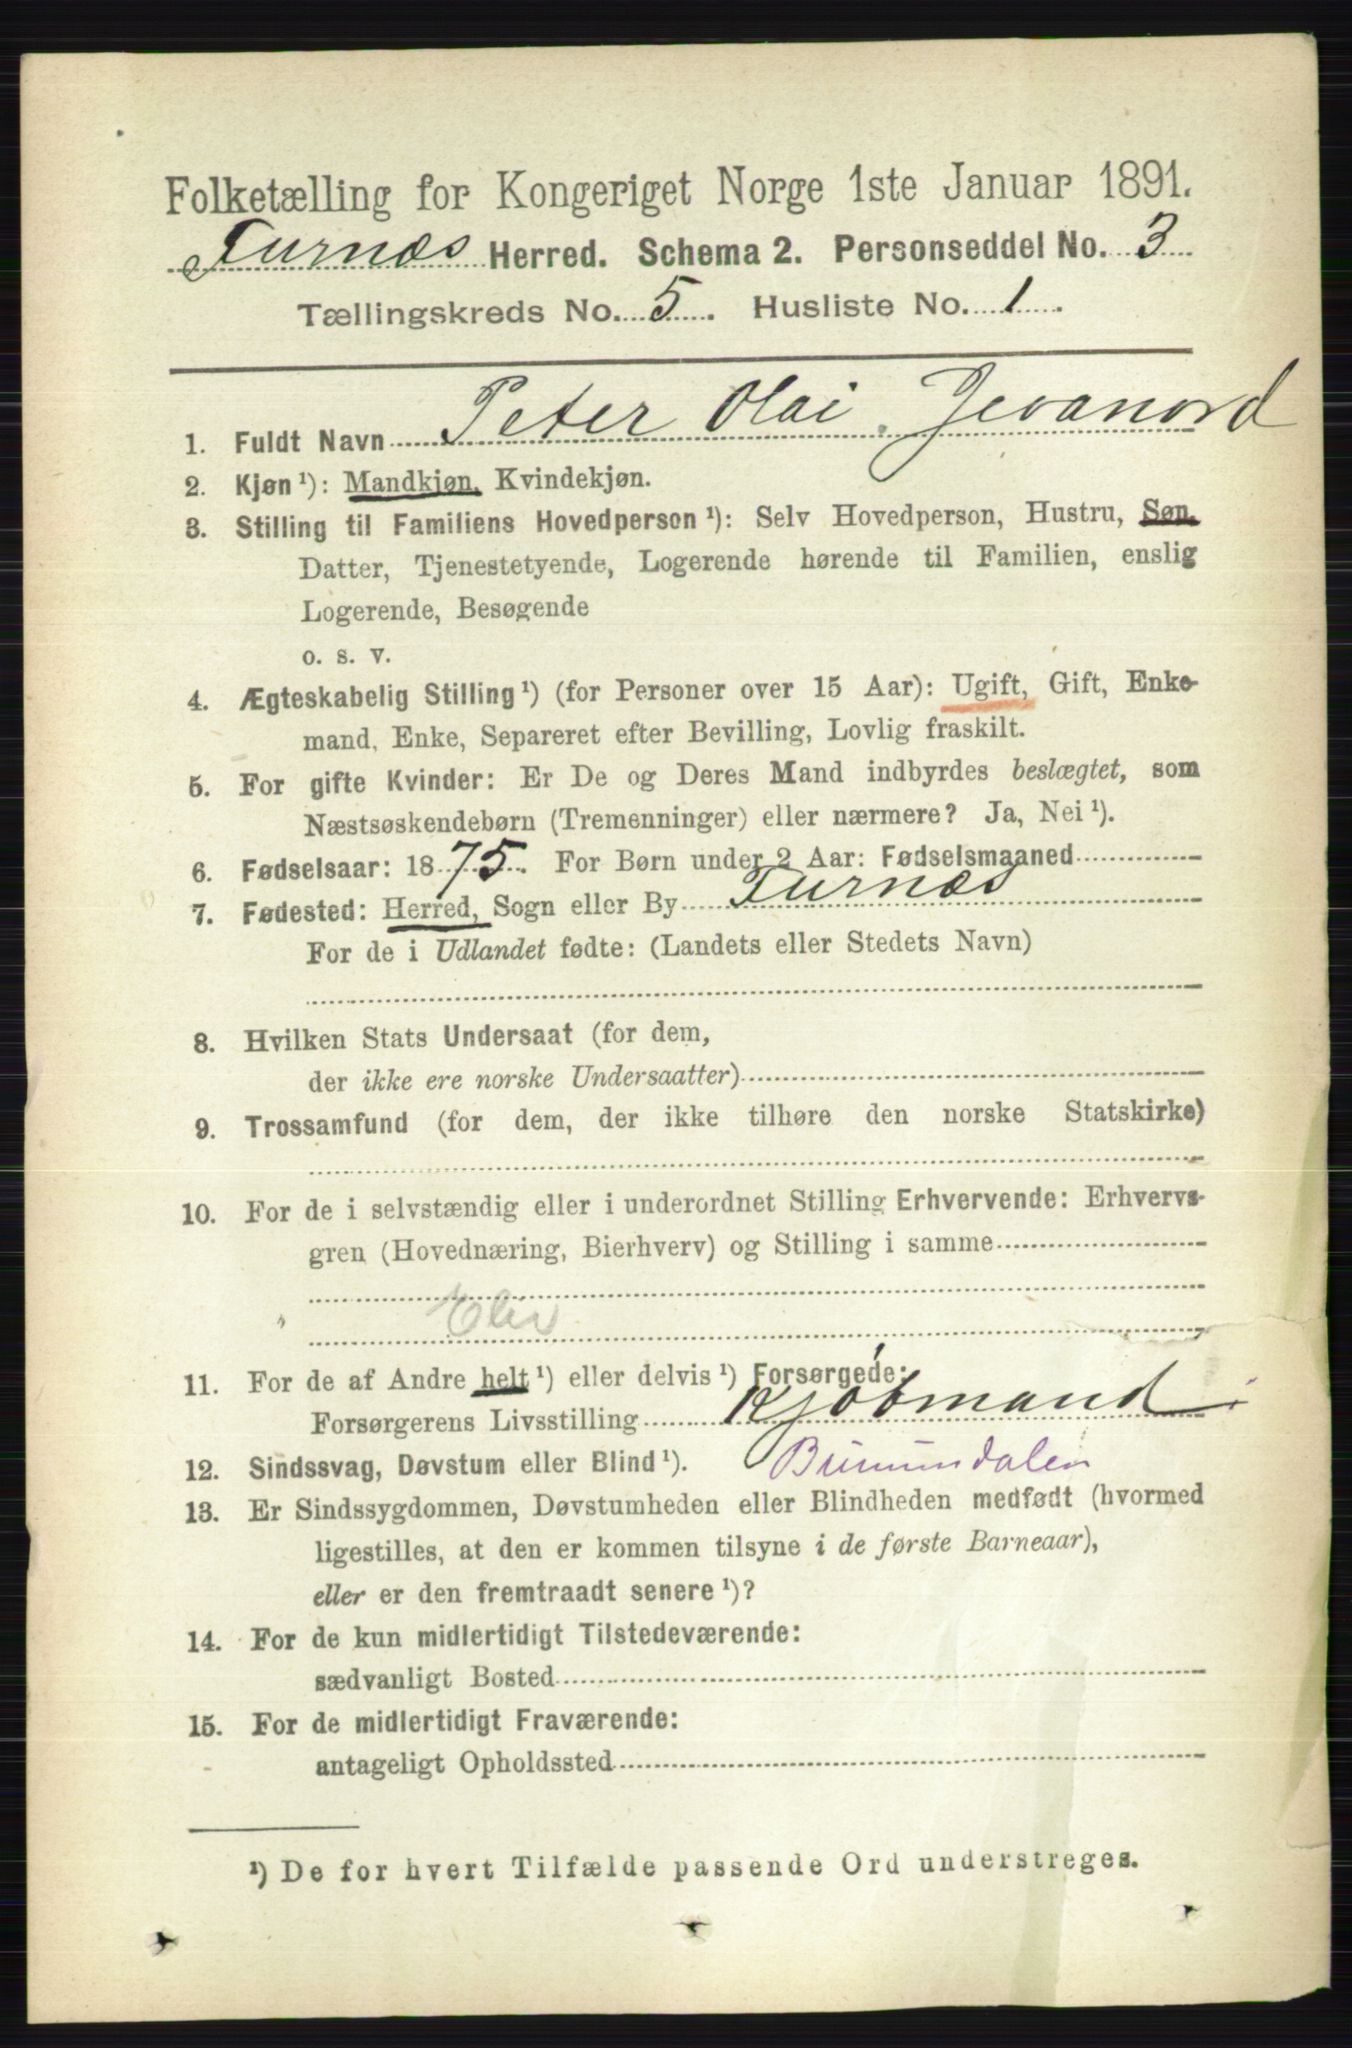 Folketælling for Kongeriget Norge 1ste Januar 1891.
Furnæs Herred. Schema 2. Personseddel No. 3
Tællingskreds No. 5. Husliste No. 1.
1. Fuldt Navn Peter Olai Jevanord
2. Kjøn ¹): Mandkjøn, Kvindekjøn.
3. Stilling til Familiens Hovedperson ¹): Selv Hovedperson, Hustru, Søn,
Datter, Tjenestetyende, Logerende hørende til Familien, enslig
Logerende, Besøgende
o. s. v.
4. Ægteskabelig Stilling ¹) (for Personer over 15 Aar): Ugift, Gift, Enke-
mand, Enke, Separeret efter Bevilling, Lovlig fraskilt.
5. For gifte Kvinder: Er De og Deres Mand indbyrdes beslægtet, som
Næstsøskendebørn (Tremenninger) eller nærmere? Ja, Nei ¹).
6. Fødselsaar: 1875. For Børn under 2 Aar: Fødselsmaaned
7. Fødested: Herred, Sogn eller By Furnæs
For de i Udlandet fødte: (Landets eller Stedets Navn)
8. Hvilken Stats Undersaat (for dem,
der ikke ere norske Undersaatter)
9. Trossamfund (for dem, der ikke tilhøre den norske Statskirke)
10. For de i selvstændig eller i underordnet Stilling Erhvervende: Erhvervs-
gren (Hovednæring, Bierhverv) og Stilling i samme
Elev
11. For de af Andre helt ¹) eller delvis ¹) Forsørgede:
Forsørgerens Livsstilling Kjøbmand i
12. Sindssvag, Døvstum eller Blind ¹). Brumundalen
13. Er Sindssygdommen, Døvstumheden eller Blindheden medfødt (hvormed
ligestilles, at den er kommen tilsyne i de første Barneaar),
eller er den fremtraadt senere ¹)?
14. For de kun midlertidigt Tilstedeværende:
sædvanligt Bosted
15. For de midlertidigt Fraværende:
antageligt Opholdssted
¹) De for hvert Tilfælde passende Ord understreges.